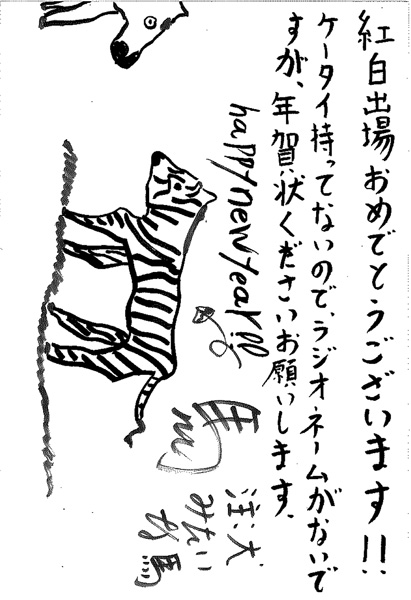 紅白出場おめでとうございます!!
ケータイ持ってないので、ラジオネームがないで
すが、年賀状くださいお願いします.
happynewyear!!
馬
注:犬
みたい
な馬